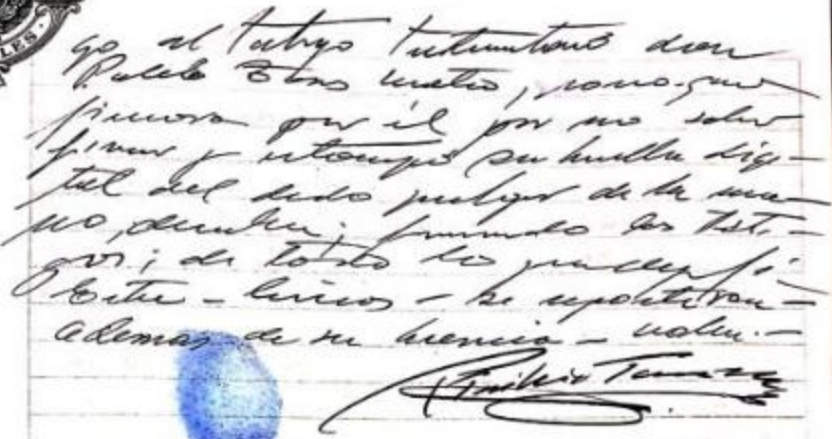 ALES.
go al testigo instrumental don
Pablo, para que
firmara por él por no saber
firmar y estampó su huella digi-
tal del dedo pulgar de la ma-
no, derecha; firmando los testi-
gos; de todo lo que doy fé.
Entre-líneas -
además de su herencia - valen.-